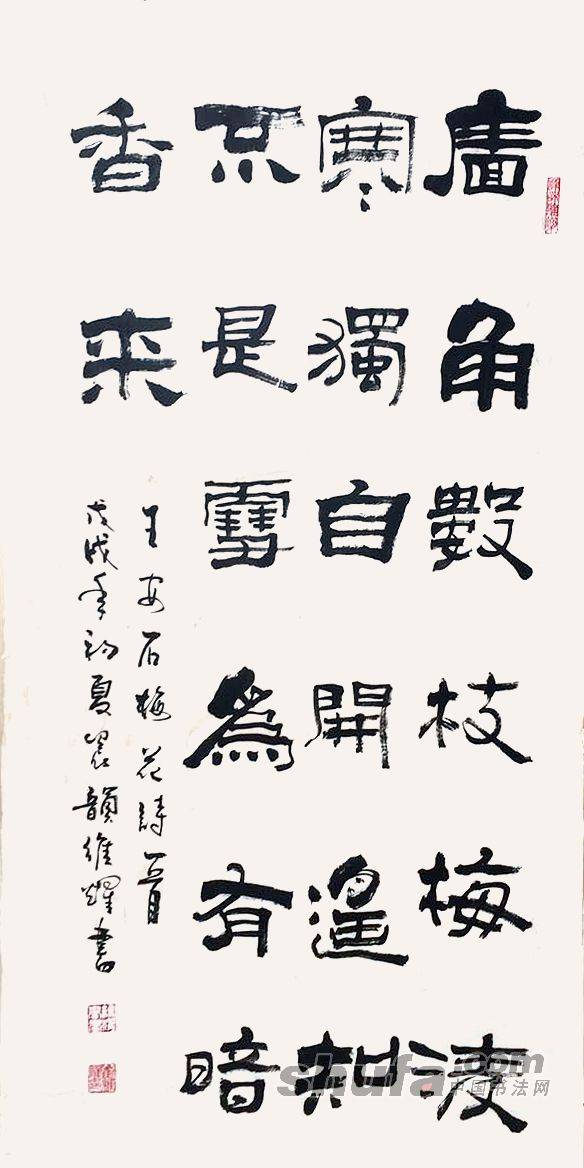 廧角數枝梅凌
寒獨自開遥知
不是雪為有暗
香来
王安石梅花詩一首
戊戌年初夏韻維耀書
shufa.com
中国书法网